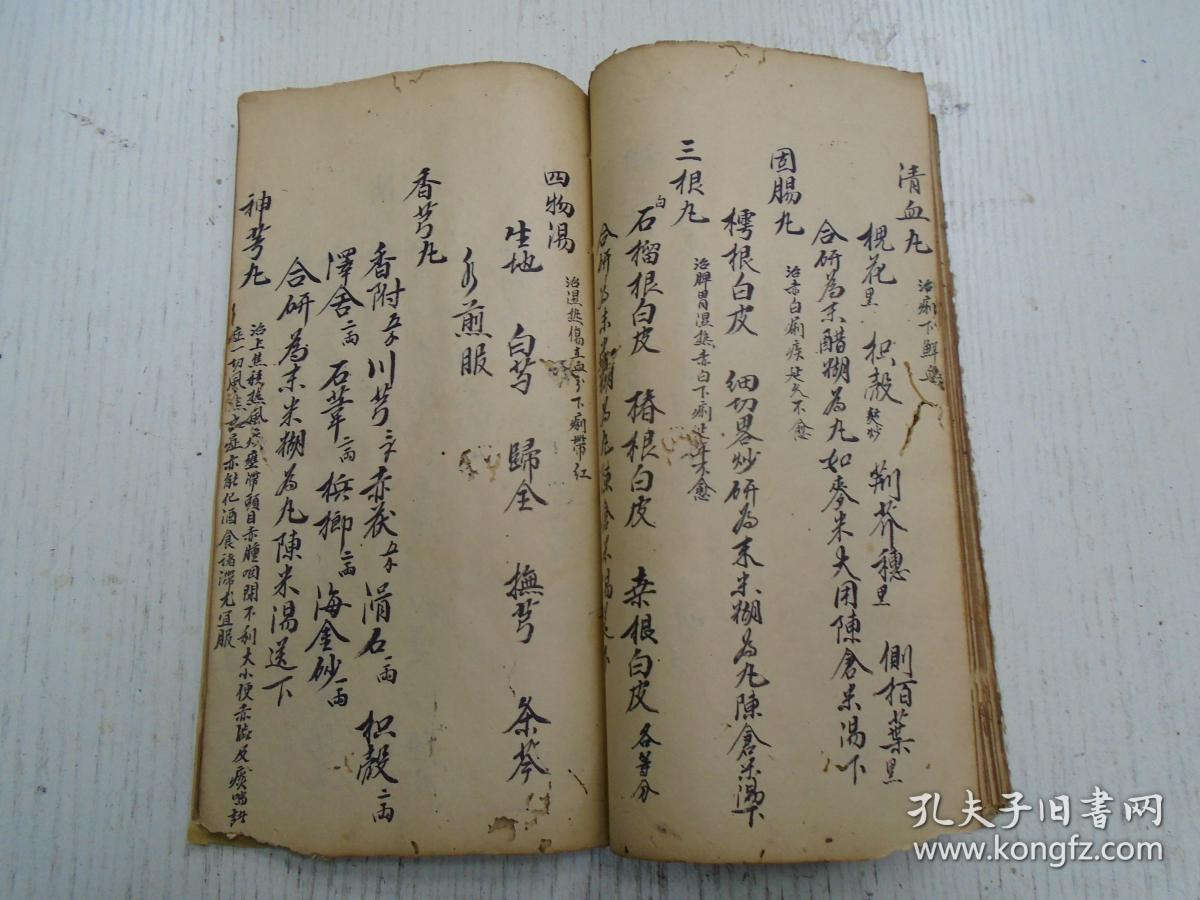 清血丸 治痢下鮮血
槐花黑 枳殼麩炒 荆芥穗黑 側栢葉黑
合研為末醋糊為丸如麥米大用陳倉米湯下
固腸丸 治赤白痢疾延久不愈
樗根白皮 細切畧炒研為末米糊為丸陳倉米湯下
三根丸 治脾胃濕熱赤白下痢延年不愈
白石榴根白皮 椿根白皮 桑根白皮 各等分
合研為末米糊為丸陳倉米湯
四物湯 治湿熱傷血分下痢帶紅
生地 白芍 歸全 撫芎 条芩
水煎服
香芎丸
香附五 川芎 赤茯五 滑石一兩 枳殼二兩
澤舍二兩 石葦二兩 梹榔二兩 海金砂一兩
合研為末米糊為丸陳米湯送下
神芎丸 治上焦積熱風痰壅滞頭目赤腫咽閉不利大小便赤澁及痰喘
症一切風熱之症亦能化酒食諸滞尤宜服
孔夫子旧书网
www.kongfz.com